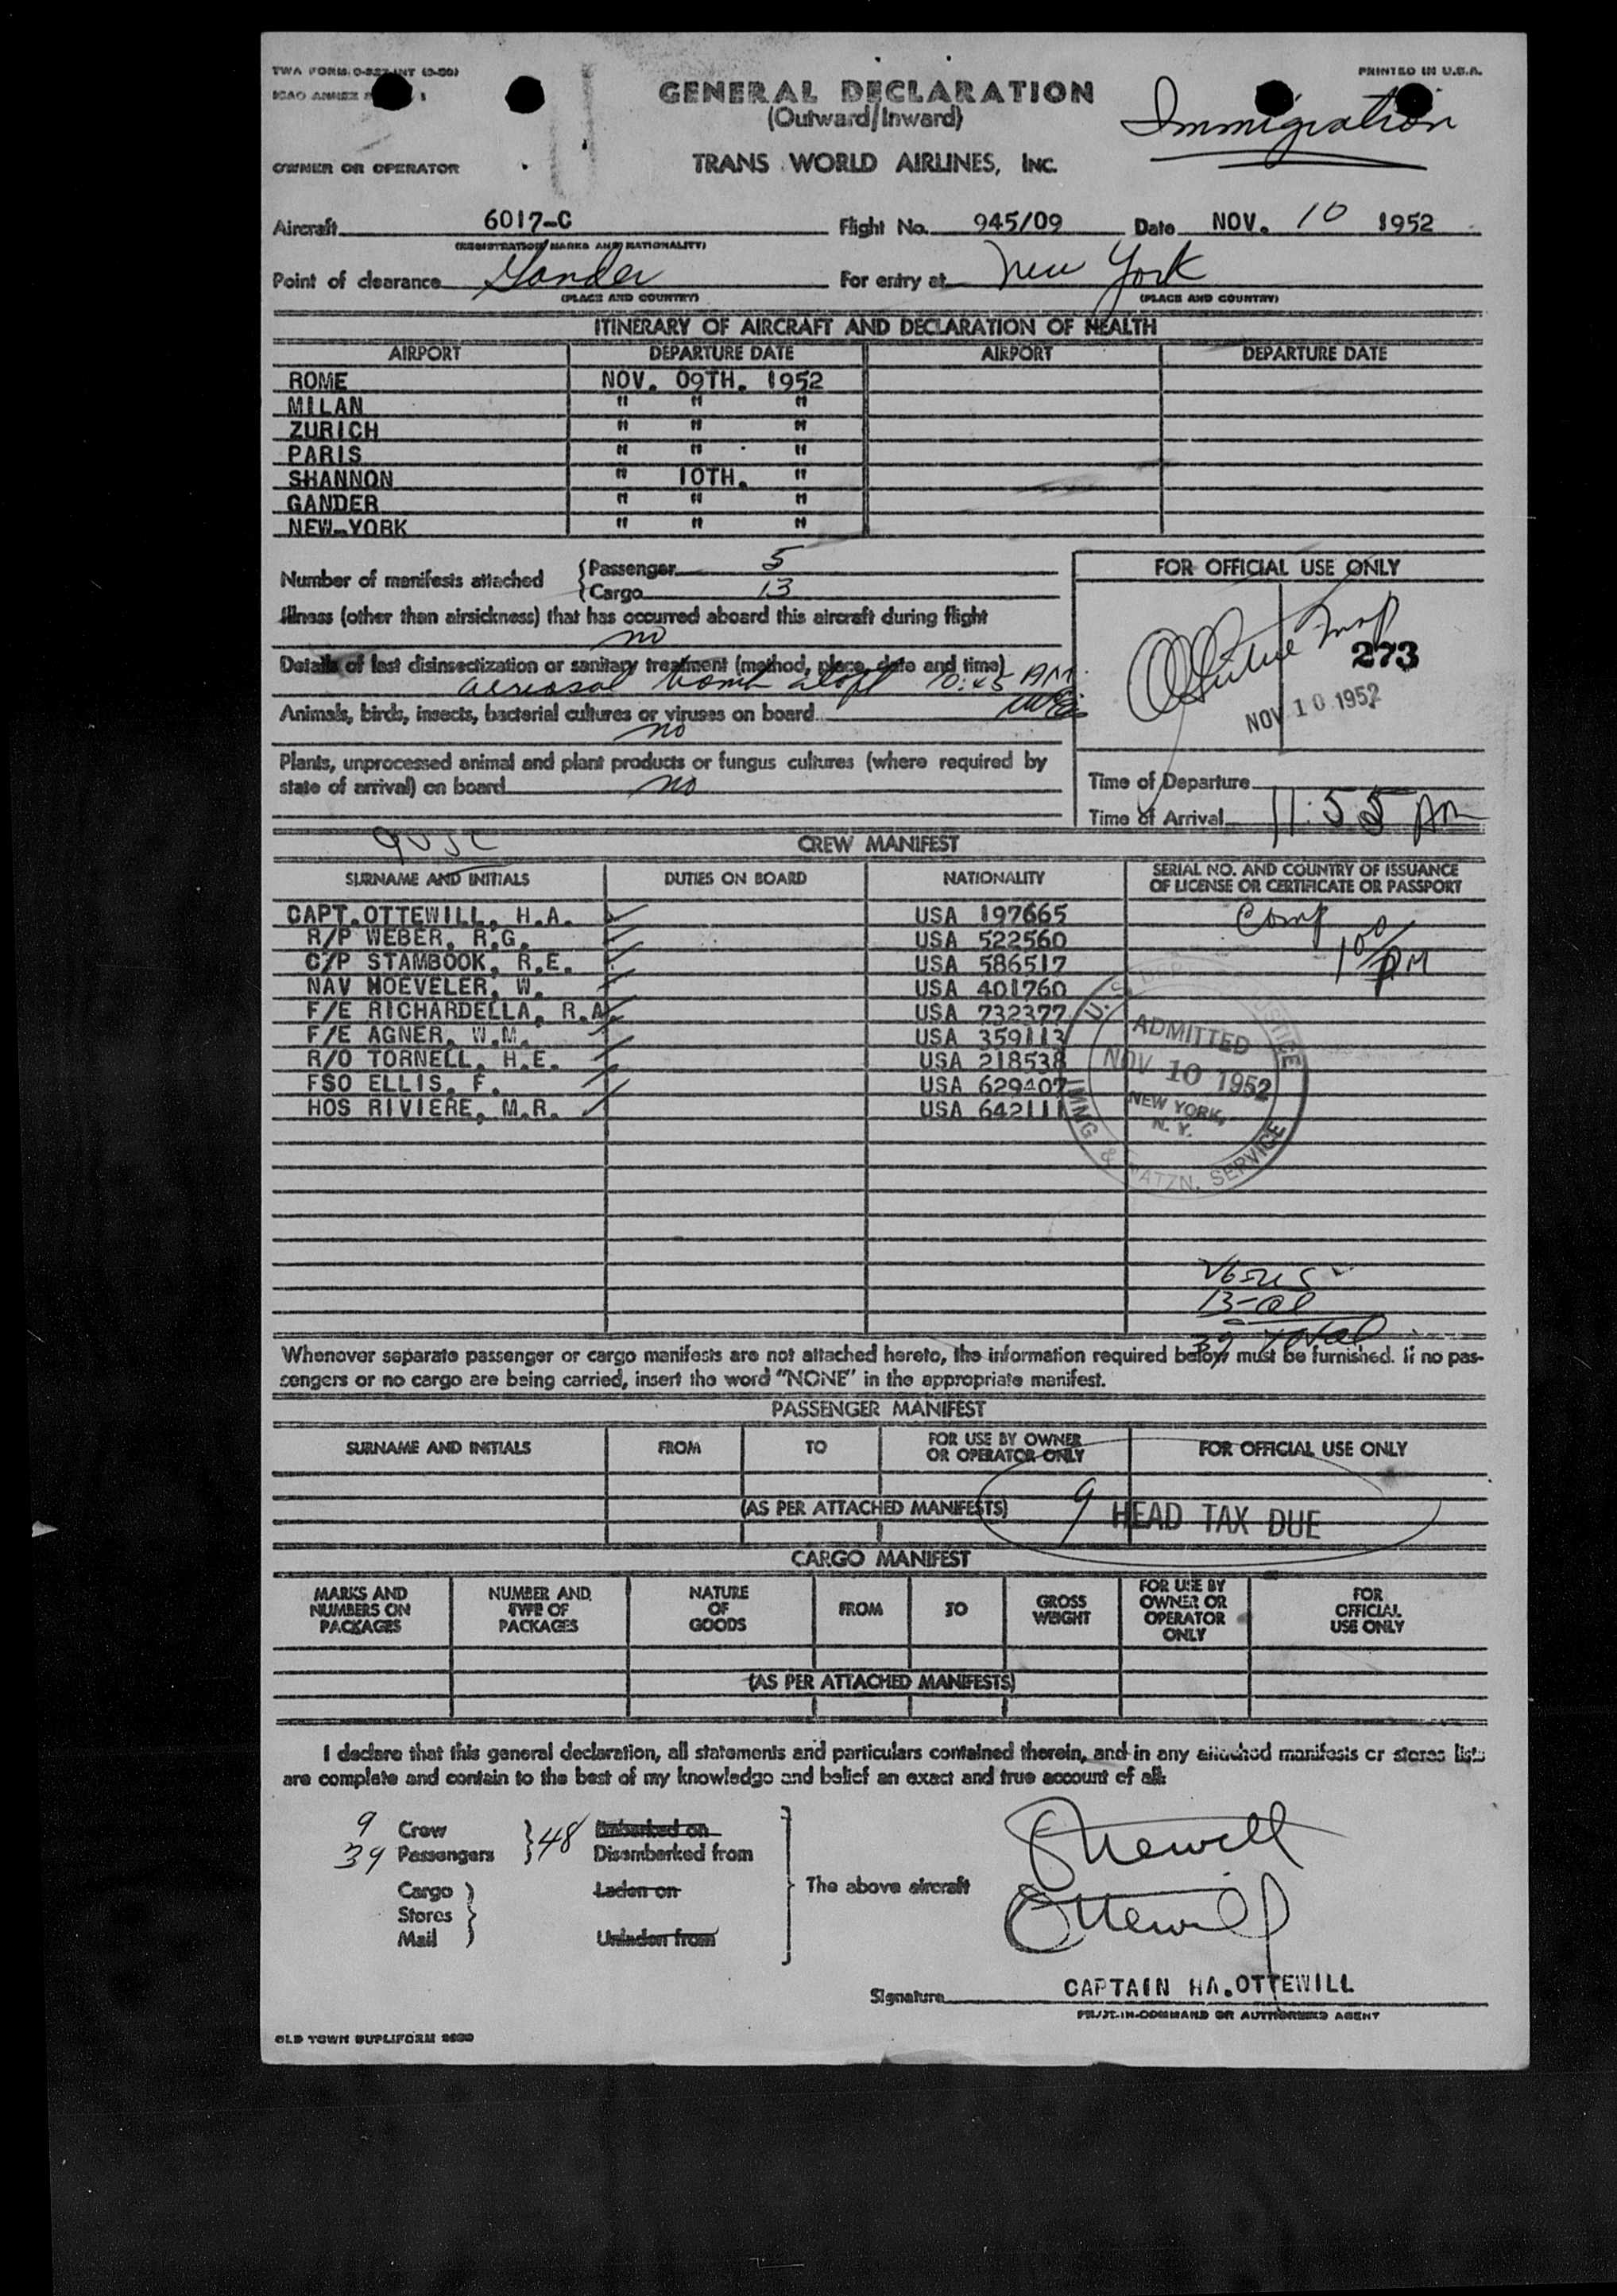 TWA FORM O-327-INT (3-50)
PRINTED IN U.S.A.
ICAO ANNEX
GENERAL DECLARATION
(Outward/Inward)
Immigration
OWNER OR OPERATOR
TRANS WORLD AIRLINES, INC.
Aircraft 6017-C Flight No. 945/09 Date NOV. 10 1952
(REGISTRATION MARKS AND NATIONALITY)
Point of clearance Gander For entry at New York
(PLACE AND COUNTRY) (PLACE AND COUNTRY)
ITINERARY OF AIRCRAFT AND DECLARATION OF HEALTH
AIRPORT DEPARTURE DATE AIRPORT DEPARTURE DATE
ROME NOV. 09TH. 1952
MILAN " " "
ZURICH " " "
PARIS " " "
SHANNON " 10TH. "
GANDER " " "
NEW-YORK " " "
Number of manifests attached
{Passenger 5
{Cargo 13
FOR OFFICIAL USE ONLY
Illness (other than airsickness) that has occurred aboard this aircraft during flight
no
Details of last disinsectization or sanitary treatment (method, place, date and time)
aerosol bomb aloft 10:45 AM
273
NOV 10 1952
Animals, birds, insects, bacterial cultures or viruses on board
no
Plants, unprocessed animal and plant products or fungus cultures (where required by
state of arrival) on board no
Time of Departure
Time of Arrival 11:55 AM
9 USC
CREW MANIFEST
SURNAME AND INITIALS DUTIES ON BOARD NATIONALITY SERIAL NO. AND COUNTRY OF ISSUANCE
OF LICENSE OR CERTIFICATE OR PASSPORT
CAPT. OTTEWILL, H.A. USA 197665
R/P WEBER, R.G. USA 522560
C/P STAMBOOK, R.E. USA 586517
NAV HOEVELER, W. USA 401760
F/E RICHARDELLA, R.A. USA 732377
F/E AGNER, W.M. USA 359113
R/O TORNELL, H.E. USA 218538
FSO ELLIS, F. USA 629407
HOS RIVIERE, M.R. USA 642111
Comp
1 00/PM
ADMITTED
NOV 10 1952
NEW YORK,
N. Y.
IMMG & NATZN. SERVICE
26 - U S
13 - al
39 total
Whenever separate passenger or cargo manifests are not attached hereto, the information required below must be furnished. If no pas-
sengers or no cargo are being carried, insert the word "NONE" in the appropriate manifest.
PASSENGER MANIFEST
SURNAME AND INITIALS FROM TO FOR USE BY OWNER
OR OPERATOR ONLY FOR OFFICIAL USE ONLY
(AS PER ATTACHED MANIFESTS)
9 HEAD TAX DUE
CARGO MANIFEST
MARKS AND
NUMBERS ON
PACKAGES
NUMBER AND
TYPE OF
PACKAGES
NATURE
OF
GOODS
FROM
TO
GROSS
WEIGHT
FOR USE BY
OWNER OR
OPERATOR
ONLY
FOR
OFFICIAL
USE ONLY
(AS PER ATTACHED MANIFESTS)
I declare that this general declaration, all statements and particulars contained therein, and in any attached manifests or stores lists
are complete and contain to the best of my knowledge and belief an exact and true account of all:
9 Crew } 48 Embarked on
39 Passengers Disembarked from
Cargo } Laden on
Stores
Mail Unladen from
The above aircraft
Ottewill
Ottewill
Signature CAPTAIN HA. OTTEWILL
PILOT-IN-COMMAND OR AUTHORISED AGENT
OLD TOWN DUPLIFORM